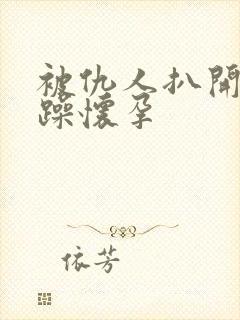 被仇人扒開
躁懷孕
依芳